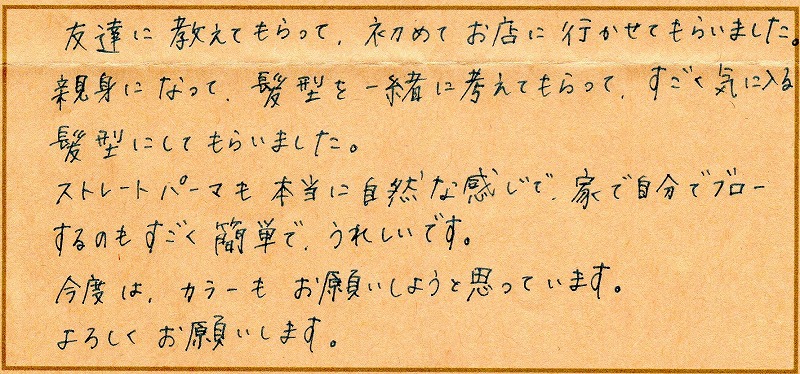 友達に教えてもらって、初めてお店に行かせてもらいました。
親身になって、髪型を一緒に考えてもらって、すごく気に入る
髪型にしてもらいました。
ストレートパーマも本当に自然な感じで、家で自分でブロー
するのもすごく簡単で、うれしいです。
今度は、カラーもお願いしようと思っています。
よろしくお願いします。